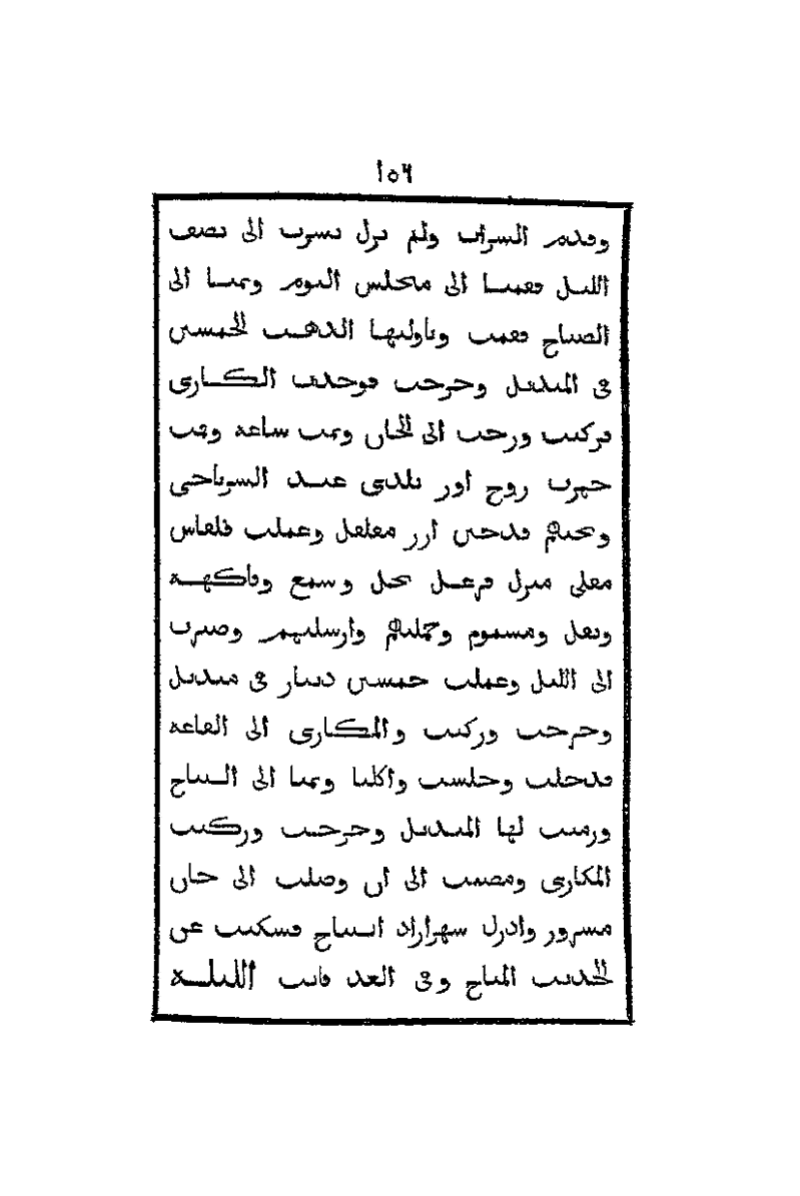 ١٥٦
وقدم الشراب ولم نزل نشرب الى نصف
الليل فقمنا الى مجلس النوم ونمنا الى
الصباح فقمت وناولتها الذهب الخمسين
في المنديل وخرجت فوجدت المكارى
فركبت ورحت الى الخان ونمت ساعة وقمت
جهزت زوج اوز بلدى عند الشرايحى
وتحتهم قدحين ارز مفلفل وعملت قلقاس
مقلى منزل فى عسل نحل وشمع وفاكهة
ونقل ومشموم وحملتهم وارسلتهم وصبرت
الى الليل وعملت خمسين دينار فى منديل
وخرجت وركبت والمكارى الى القاعة
فدخلت وجلست واكلنا ونمنا الى الصباح
ورميت لها المنديل وخرجت وركبت
المكارى ومضيت الى ان وصلت الى خان
مسرور وادرك شهرازاد الصباح فسكتت عن
الحديث المباح وفى الغد قالت الليلة